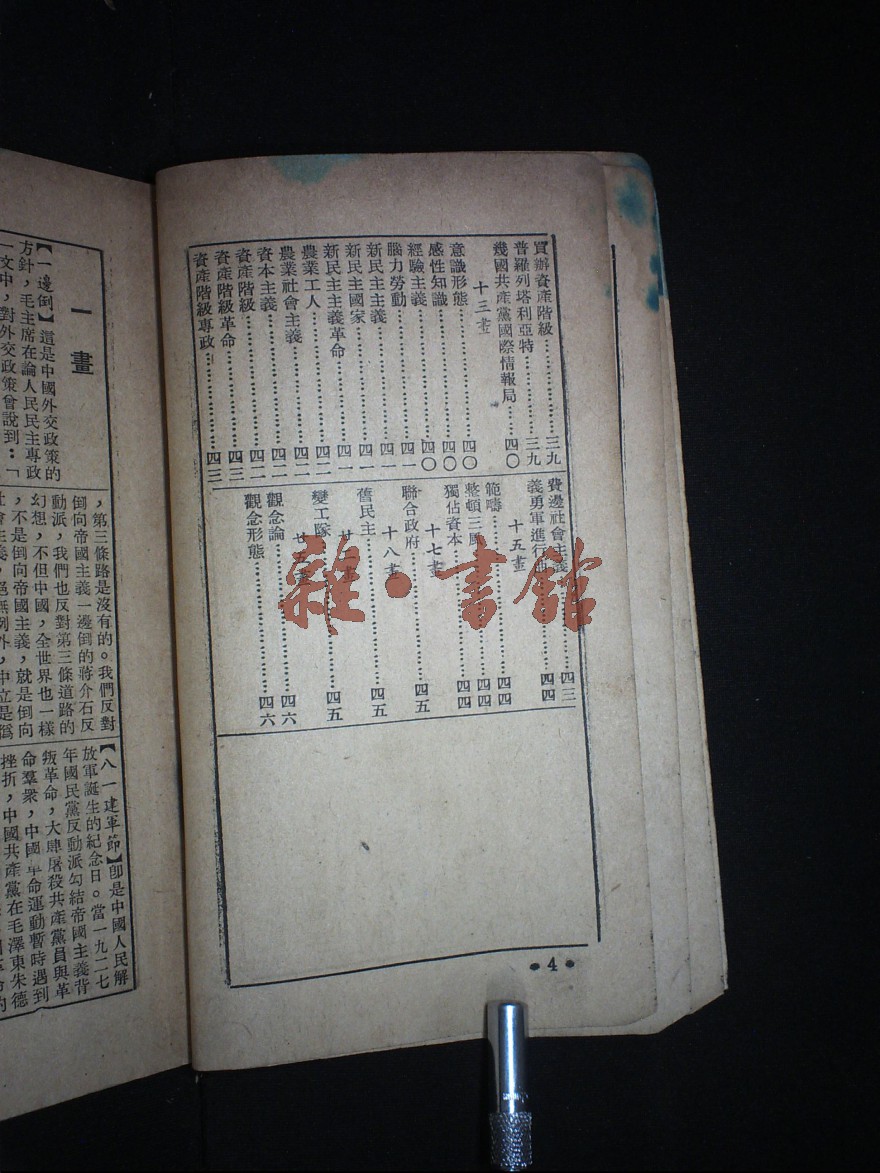 買辦資產階級……………三九
普羅列塔利亞特……………三九
幾國共產黨國際情報局……四〇
十三畫
意識形態……………四〇
感性知識……………四〇
經驗主義……………四〇
腦力勞動……………四一
新民主主義……………四一
新民主國家……………四一
新民主主義革命……………四一
農業工人……………四二
農業社會主義……………四二
資本主義……………四二
資產階級……………四二
資產階級革命……………四三
資產階級專政……………四三
費邊社會主義……………四三
義勇軍進行曲……………四四
十五畫
範疇……………四四
整頓三風……………四四
獨佔資本……………四四
十七畫
聯合政府……………四五
十八畫
舊民主……………四五
廿一畫
變工隊……………四五
廿五畫
觀念論……………四六
觀念形態……………四六
4
雜·書館
一畫
【一邊倒】這是中國外交政策的
方針，毛主席在論人民民主專政
一文中，對外交政策曾說到：「
，第三條路是沒有的。我們反對
倒向帝國主義一邊倒的蔣介石反
動派，我們也反對第三條道路的
幻想，不但中國，全世界也一樣
，不是倒向帝國主義，就是倒向
社會主義，絕無例外，中立是僞
【八一建軍節】卽是中國人民解
放軍誕生的紀念日。當一九二七
年國民黨反動派勾結帝國主義背
叛革命，大肆屠殺共產黨員與革
命羣衆，中國革命運動暫時遇到
挫折，中國共產黨在毛澤東朱德